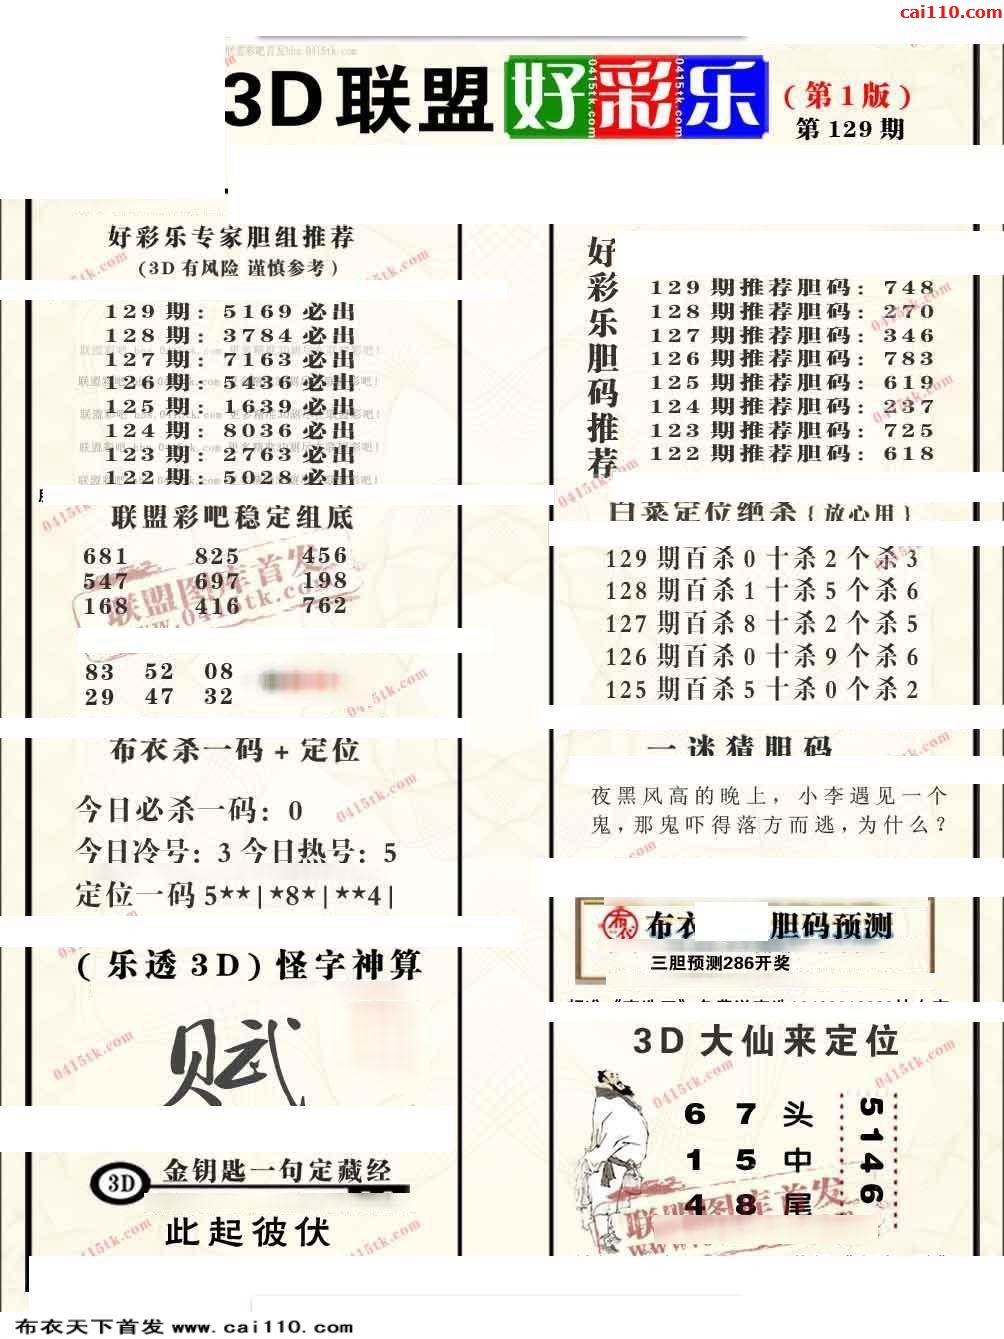 cai110.com
3D联盟好彩乐
(第1版)
第129期
好彩乐专家胆组推荐
(3D有风险 谨慎参考)
129期: 5169必出
128期: 3784必出
127期: 7163必出
126期: 5436必出
125期: 1639必出
124期: 8036必出
123期: 2763必出
122期: 5028必出
联盟彩吧稳定组底
681 825 456
547 697 198
168 416 762
83 52 08
29 47 32
布衣杀一码+定位
今日必杀一码: 0
今日冷号: 3 今日热号: 5
定位一码 5**|*8*|**4|
(乐透3D)怪字神算
赋
3D
金钥匙一句定藏经
此起彼伏
好彩乐胆码推荐
129期推荐胆码: 748
128期推荐胆码: 270
127期推荐胆码: 346
126期推荐胆码: 783
125期推荐胆码: 619
124期推荐胆码: 237
123期推荐胆码: 725
122期推荐胆码: 618
白菜定位绝杀{放心用}
129期百杀0十杀2个杀3
128期百杀1十杀5个杀6
127期百杀8十杀2个杀5
126期百杀0十杀9个杀6
125期百杀5十杀0个杀2
一迷猜胆码
夜黑风高的晚上，小李遇见一个
鬼，那鬼吓得落方而逃，为什么？
布衣 胆码预测
三胆预测286开奖
3D大仙来定位
6 7 头
1 5 中
4 8 尾
5146
联盟图库首发
0415tk.com
布衣天下首发 www.cai110.com